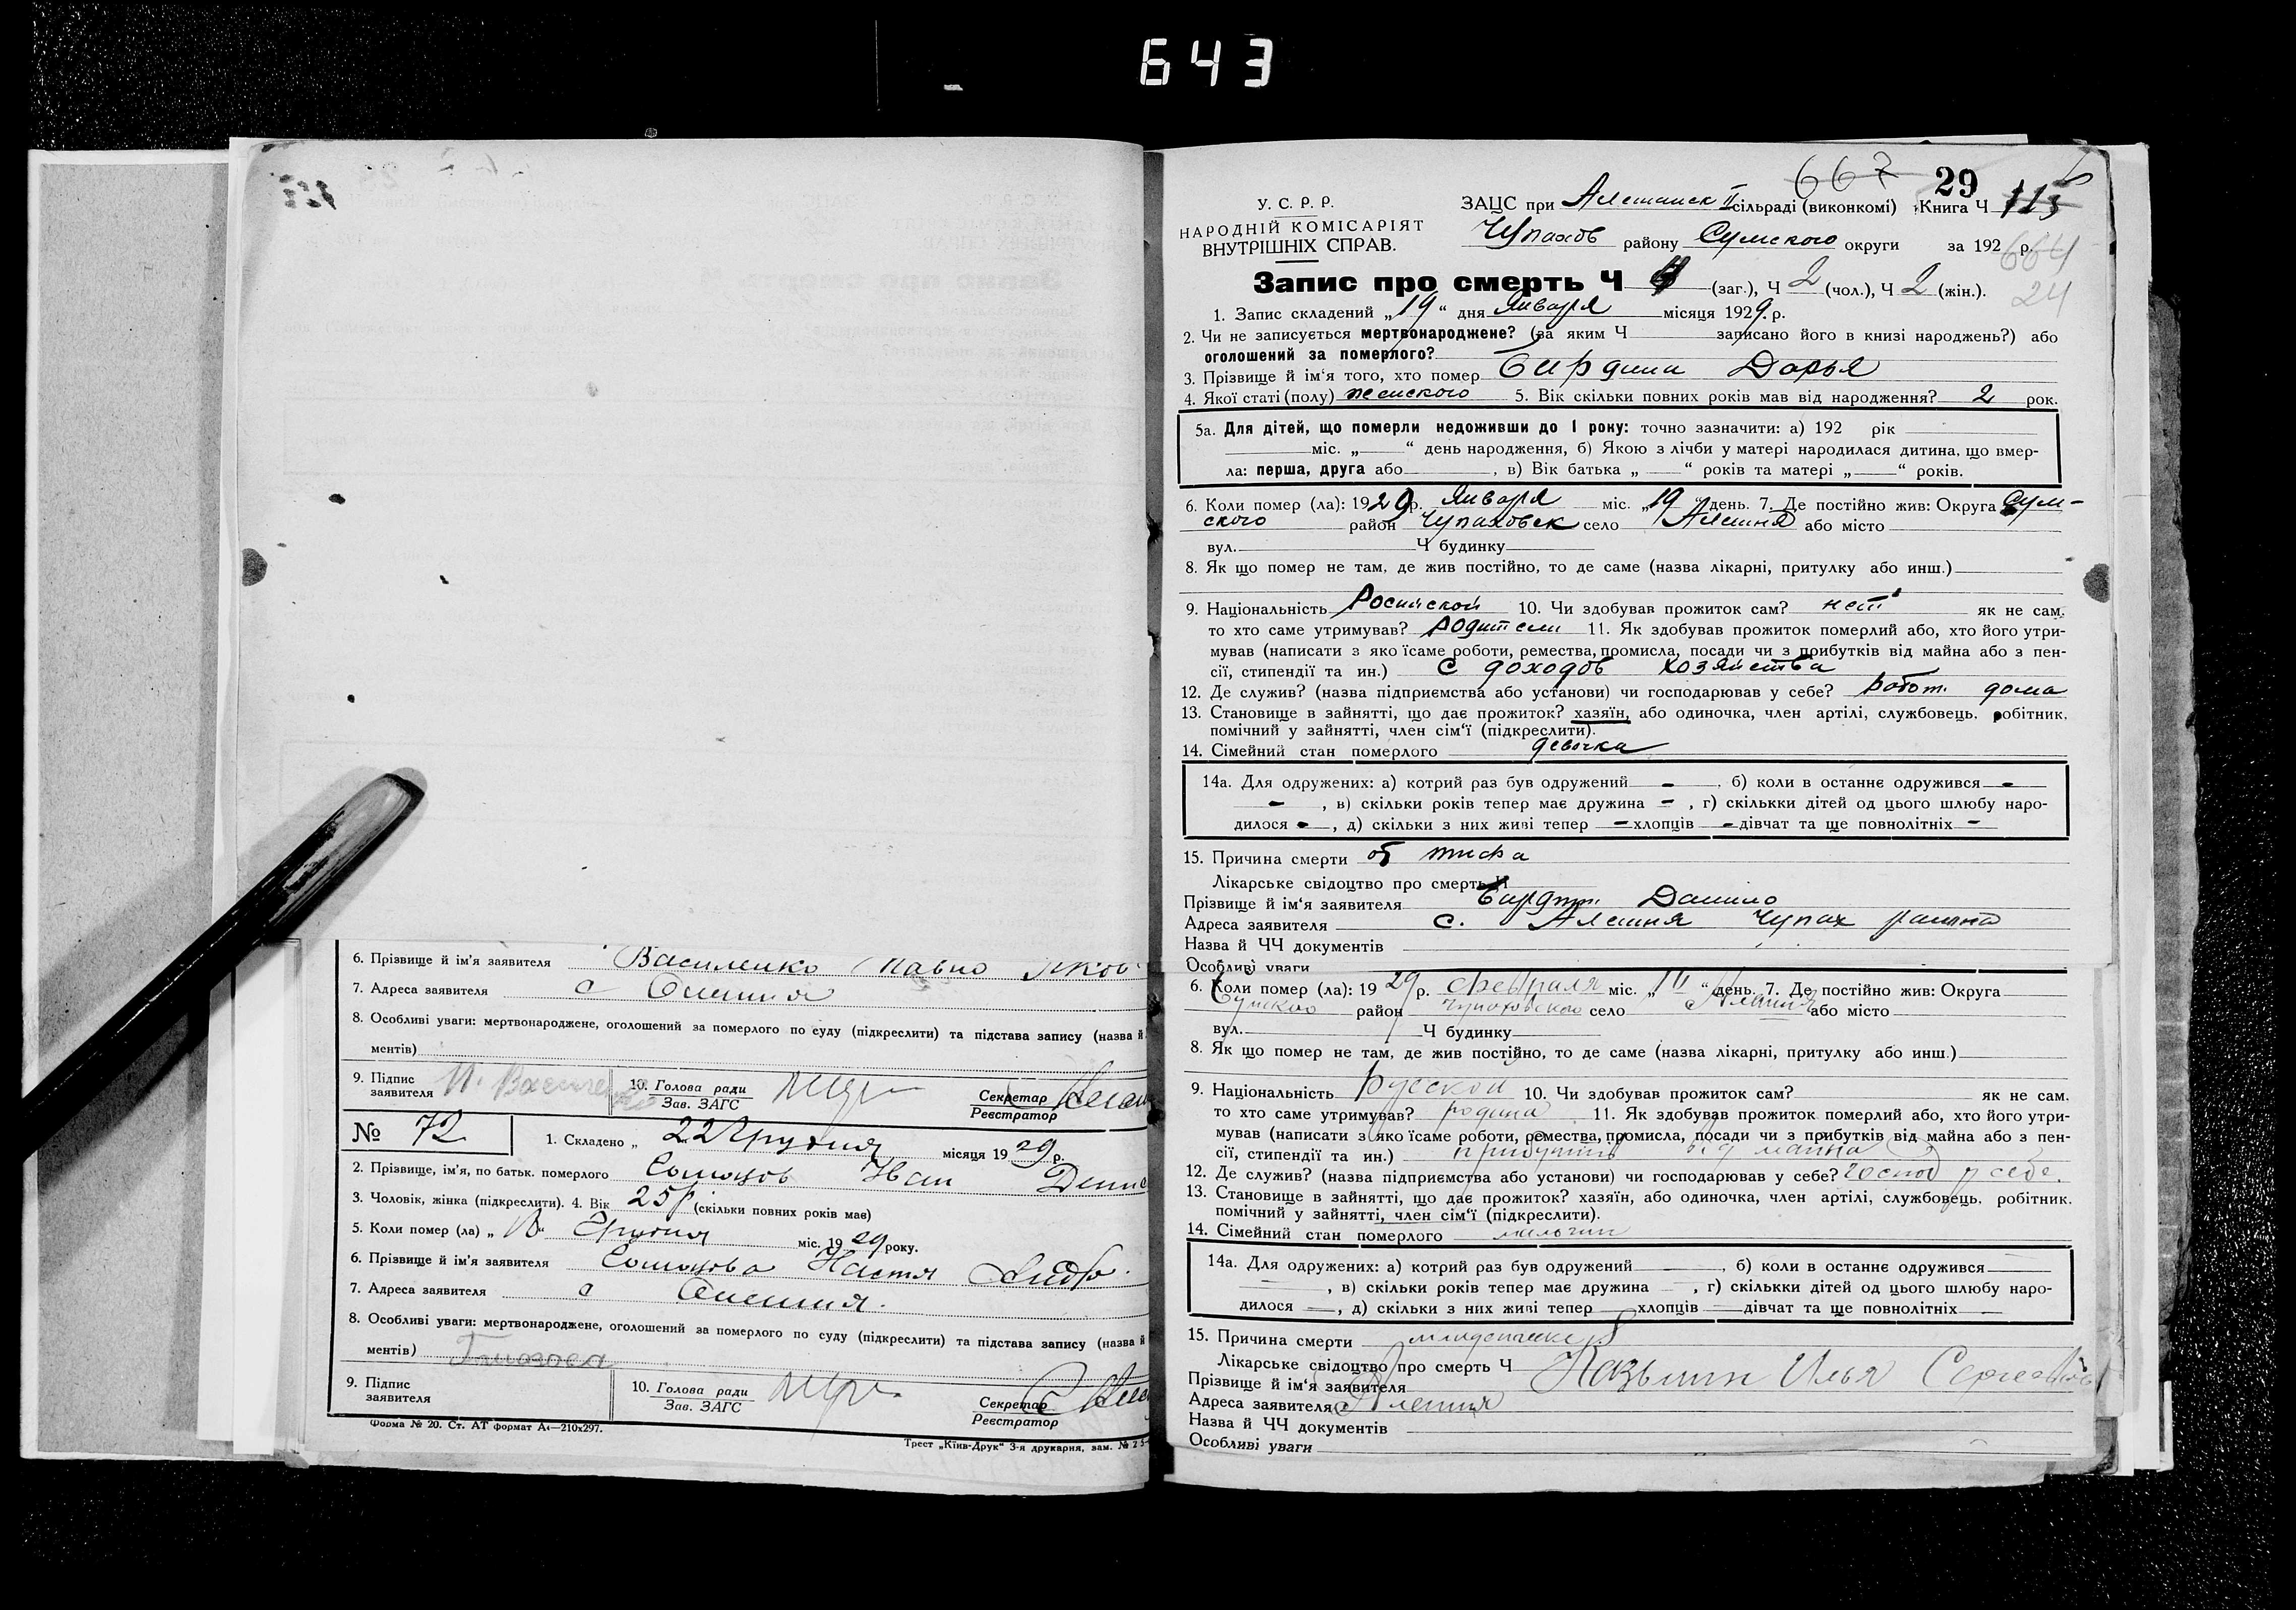 643
6. Прізвище й ім'я заявителя Василенко Павло Яков
7. Адреса заявителя с Олешня
8. Особливі уваги: мертвонароджене, оголошений за померлого по суду (підкреслити) та підстава запису (назва й
ментів)
9. Підпис заявителя
10. Голова ради
Зав. ЗАГС
Секретар
Реєстратор
№ 72
1. Складено „ 22 Грудня місяця 1929 р.
2. Прізвище, ім'я, по батьк. померлого Іван
3. Чоловік, жінка (підкреслити). 4. Вік 25 р (скільки повних років має)
5. Коли помер (ла) „ Грудня міс. 1929 року.
6. Прізвище й ім'я заявителя Настя
7. Адреса заявителя с Олешня.
8. Особливі уваги: мертвонароджене, оголошений за померлого по суду (підкреслити) та підстава запису (назва й
ментів)
9. Підпис заявителя
10. Голова ради
Зав. ЗАГС
Секретар
Реєстратор
Форма № 20. Ст. АТ формат А4—210х297.
Трест „Київ-Друк" 3-я друкарня, зам. №
667 29
У. С. Р. Р.
НАРОДНІЙ КОМІСАРІЯТ
ВНУТРІШНІХ СПРАВ.
ЗАЦС при Алешанск II сільраді (виконкомі) Книга Ч 113
Чупахов району Сумского округи за 192 р.
664
24
Запис про смерть Ч (заг.), Ч 2 (чол.), Ч 2 (жін.).
1. Запис складений „19" дня Января місяця 1929. р.
2. Чи не записується мертвонароджене? (за яким Ч записано його в книзі народжень?) або
оголошений за померлого?
3. Прізвище й ім'я того, хто помер Дарья
4. Якої статі (полу) женского 5. Вік скільки повних років мав від народження? 2 рок.
5а. Для дітей, що померли недоживши до 1 року: точно зазначити: а) 192 рік
міс. „ " день народження, б) Якою з лічби у матері народилася дитина, що вмер-
ла: перша, друга або , в) Вік батька „ " років та матері „ " років.
6. Коли помер (ла): 1929 р. Января міс. „19" день. 7. Де постійно жив: Округа Сум-
ского район Чупаховск село Алешня або місто
вул. Ч будинку
8. Як що помер не там, де жив постійно, то де саме (назва лікарні, притулку або инш.)
9. Національність Росийской 10. Чи здобував прожиток сам? нет як не сам.
то хто саме утримував? Родители 11. Як здобував прожиток померлий або, хто його утри-
мував (написати з яко їсаме роботи, ремества, промисла, посади чи з прибутків від майна або з пен-
сії, стипендії та ин.) С доходов хозяйства
12. Де служив? (назва підприємства або установи) чи господарював у себе? Работ. дома
13. Становище в зайнятті, що дає прожиток? хазяїн, або одиночка, член артілі, службовець, робітник,
помічний у зайнятті, член сім'ї (підкреслити).
14. Сімейний стан померлого девочка
14а. Для одружених: а) котрий раз був одружений - , б) коли в останнє одружився -
- , в) скільки років тепер має дружина - , г) скількки дітей од цього шлюбу наро-
дилося - , д) скільки з них живі тепер - хлопців - дівчат та ще повнолітніх -
15. Причина смерти от тифа
Лікарське свідоцтво про смерть Ч
Прізвище й ім'я заявителя Данило
Адреса заявителя с. Алешня Чупах района
Назва й ЧЧ документів
Особливі уваги
6. Коли помер (ла): 1929 р. Февраля міс. „ " день. 7. Де постійно жив: Округа
Сумская район Чупаховского село Алешня або місто
вул. Ч будинку
8. Як що помер не там, де жив постійно, то де саме (назва лікарні, притулку або инш.)
9. Національність Русской 10. Чи здобував прожиток сам? як не сам.
то хто саме утримував? родина 11. Як здобував прожиток померлий або, хто його утри-
мував (написати з яко їсаме роботи, ремества, промисла, посади чи з прибутків від майна або з пен-
сії, стипендії та ин.) прибутків від майна
12. Де служив? (назва підприємства або установи) чи господарював у себе? Господ у себе.
13. Становище в зайнятті, що дає прожиток? хазяїн, або одиночка, член артілі, службовець, робітник.
помічний у зайнятті, член сім'ї (підкреслити).
14. Сімейний стан померлого
14а. Для одружених: а) котрий раз був одружений , б) коли в останнє одружився
, в) скільки років тепер має дружина , г) скількки дітей од цього шлюбу наро-
дилося , д) скільки з них живі тепер хлопців дівчат та ще повнолітніх
15. Причина смерти
Лікарське свідоцтво про смерть Ч
Прізвище й ім'я заявителя Казьмин Илья Сергеевич
Адреса заявителя с Алешня
Назва й ЧЧ документів
Особливі уваги